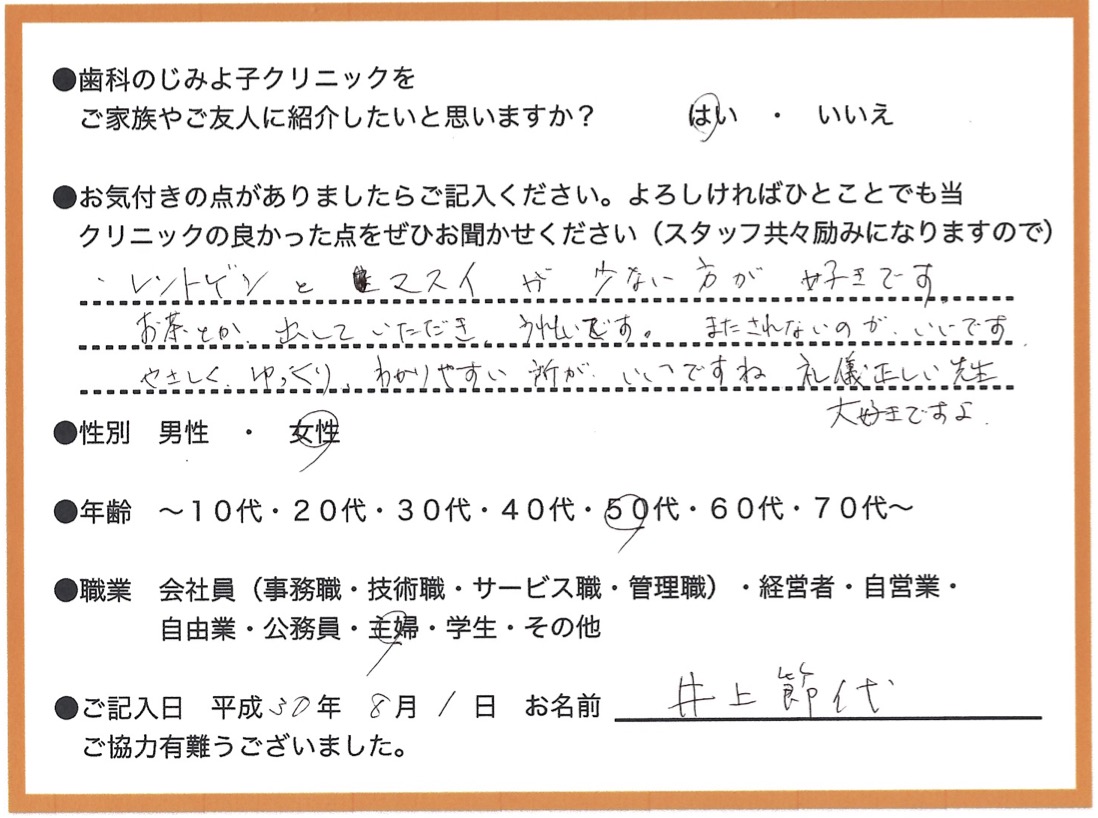 ●歯科のじみよ子クリニックを
ご家族やご友人に紹介したいと思いますか？　はい ・ いいえ
●お気付きの点がありましたらご記入ください。よろしければひとことでも当
クリニックの良かった点をぜひお聞かせください（スタッフ共々励みになりますので）
・レントゲンとマスイが少ない方が好きです。
お茶とか、出していただき、うれしいです。またされないのが、いいです。
やさしく、ゆっくり、わかりやすい所が、いいですね 礼儀正しい先生
大好きですよ。
●性別　男性 ・ 女性
●年齢　～１０代・２０代・３０代・４０代・５０代・６０代・７０代～
●職業　会社員（事務職・技術職・サービス職・管理職）・経営者・自営業・
自由業・公務員・主婦・学生・その他
●ご記入日　平成30年　8月　1日　お名前　井上節代
ご協力有難うございました。